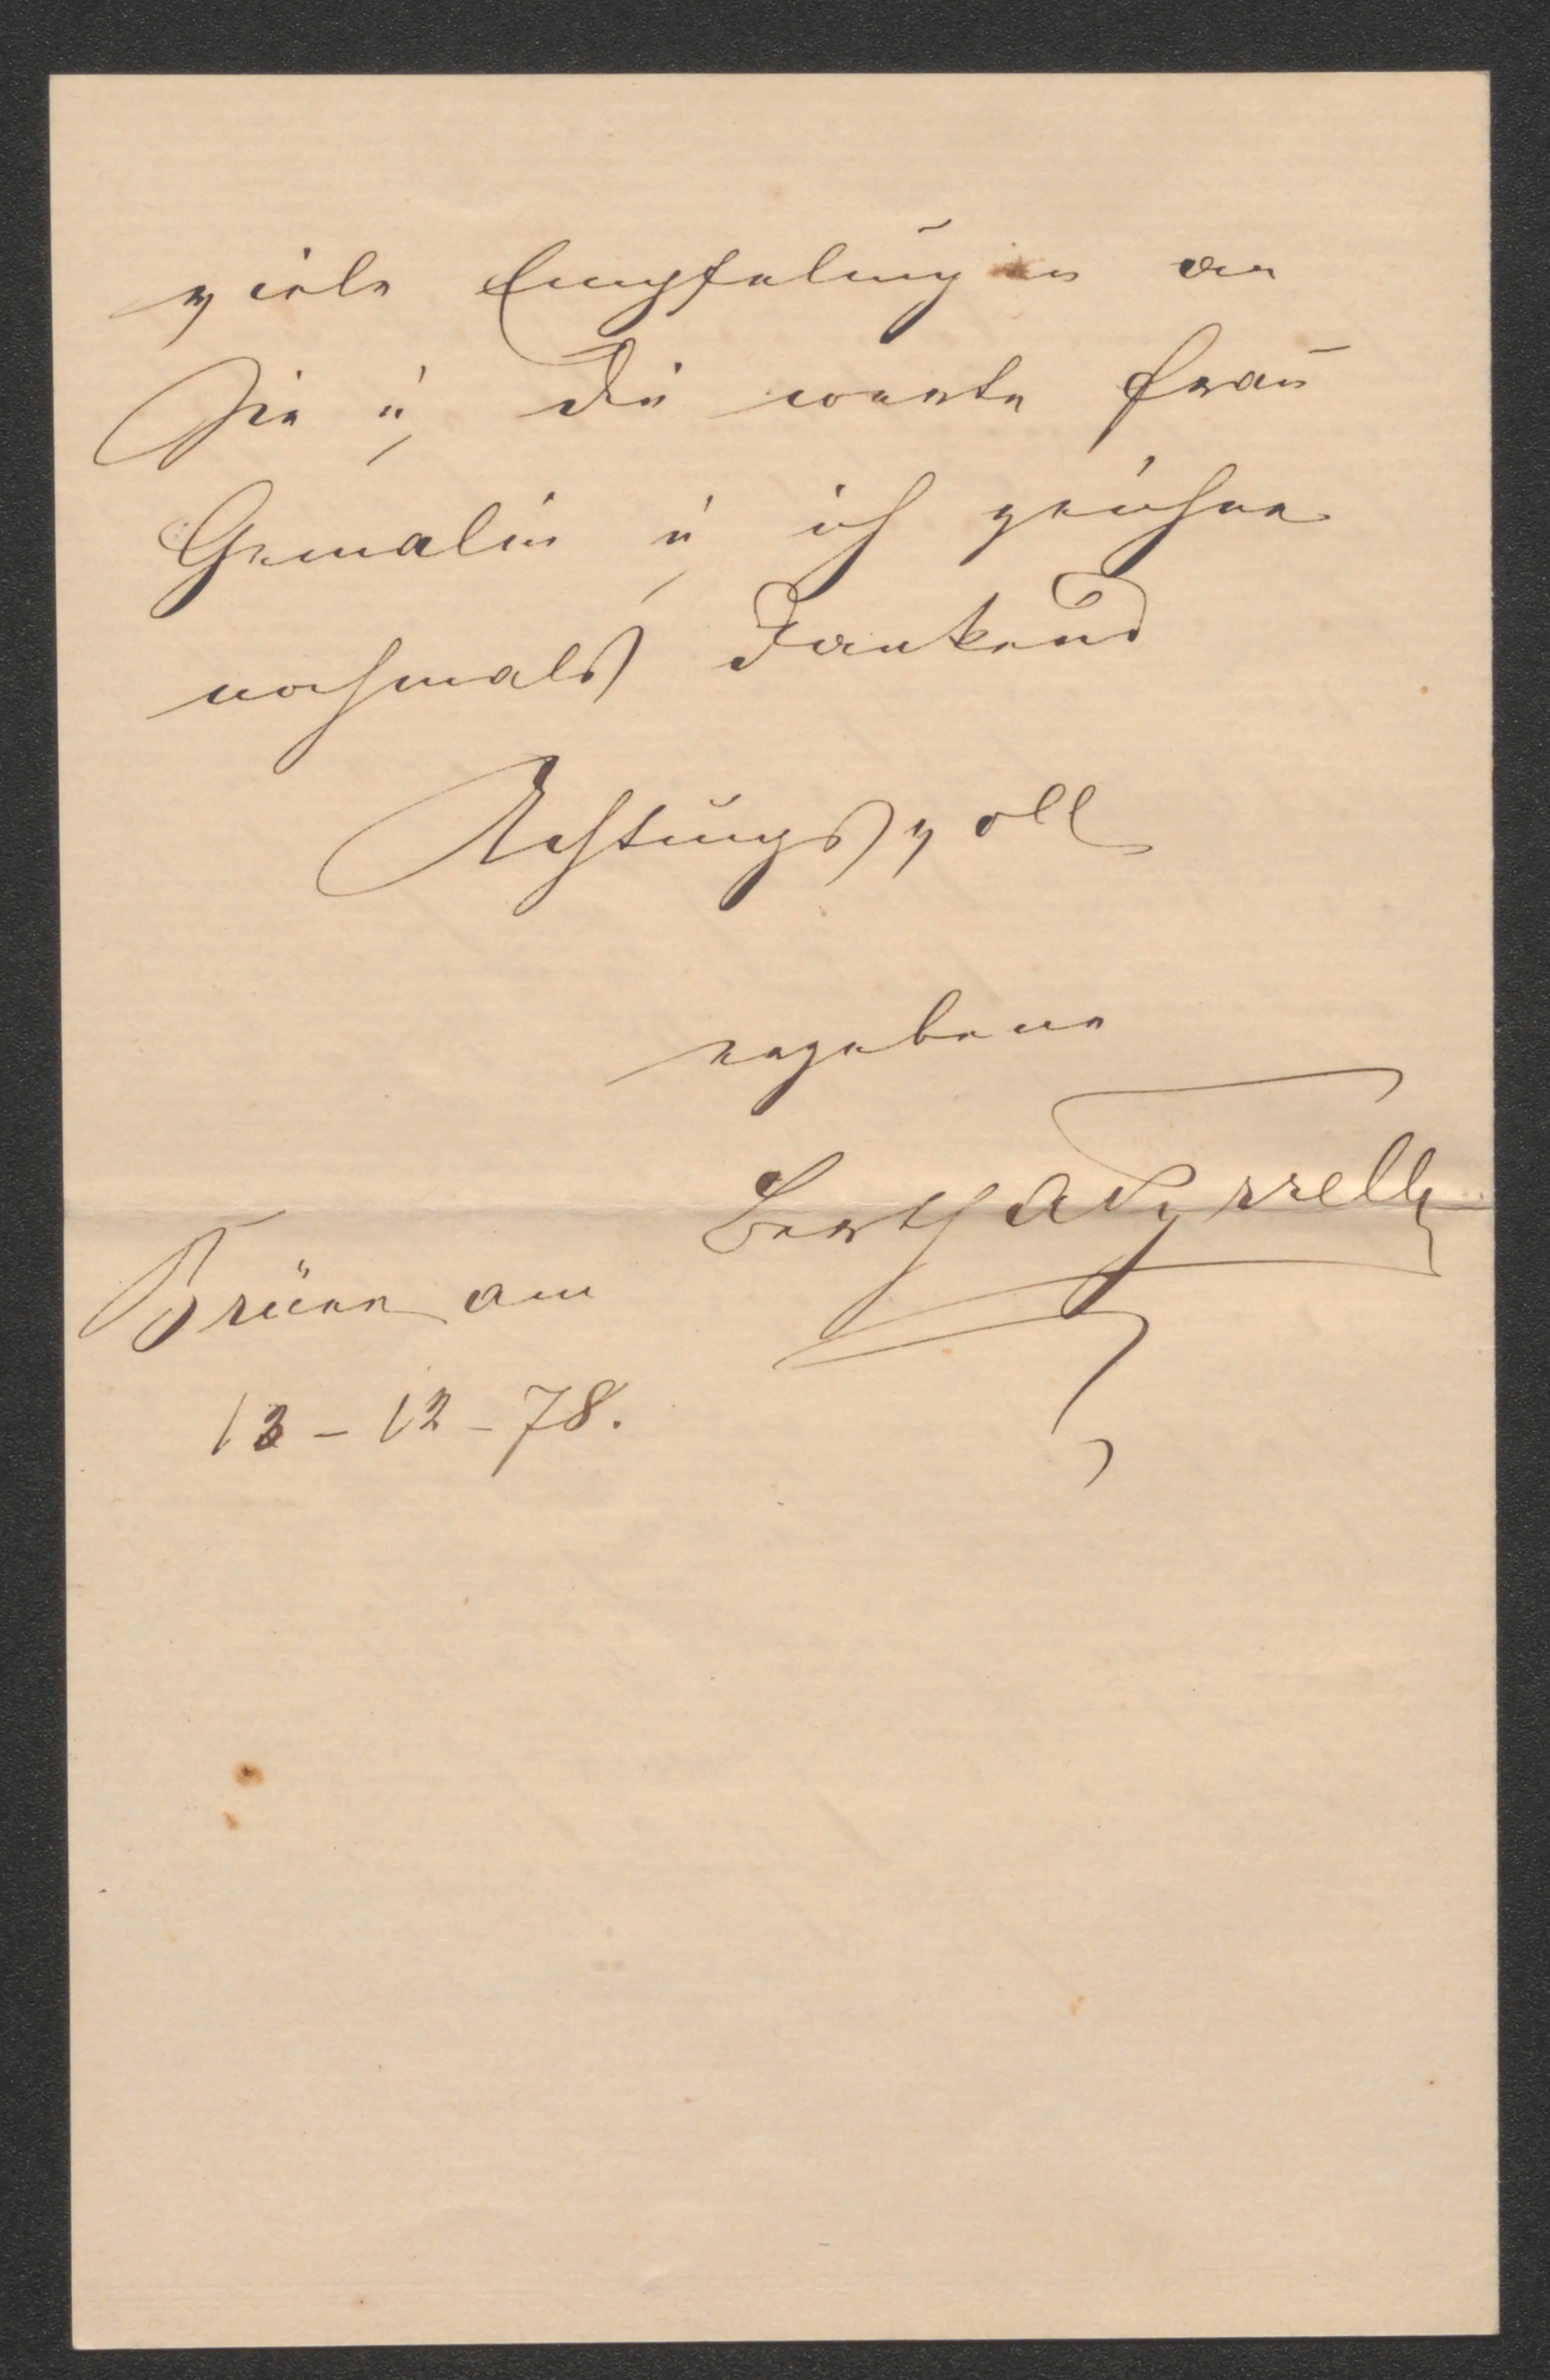 viele Empfelungen an
Sie u die werte Frau
Gemalin u ich zeichne
nochmals dankend
Achtungsvoll
ergebene
Bertha Tyrrell
Brünn am
13 - 12 - 78.